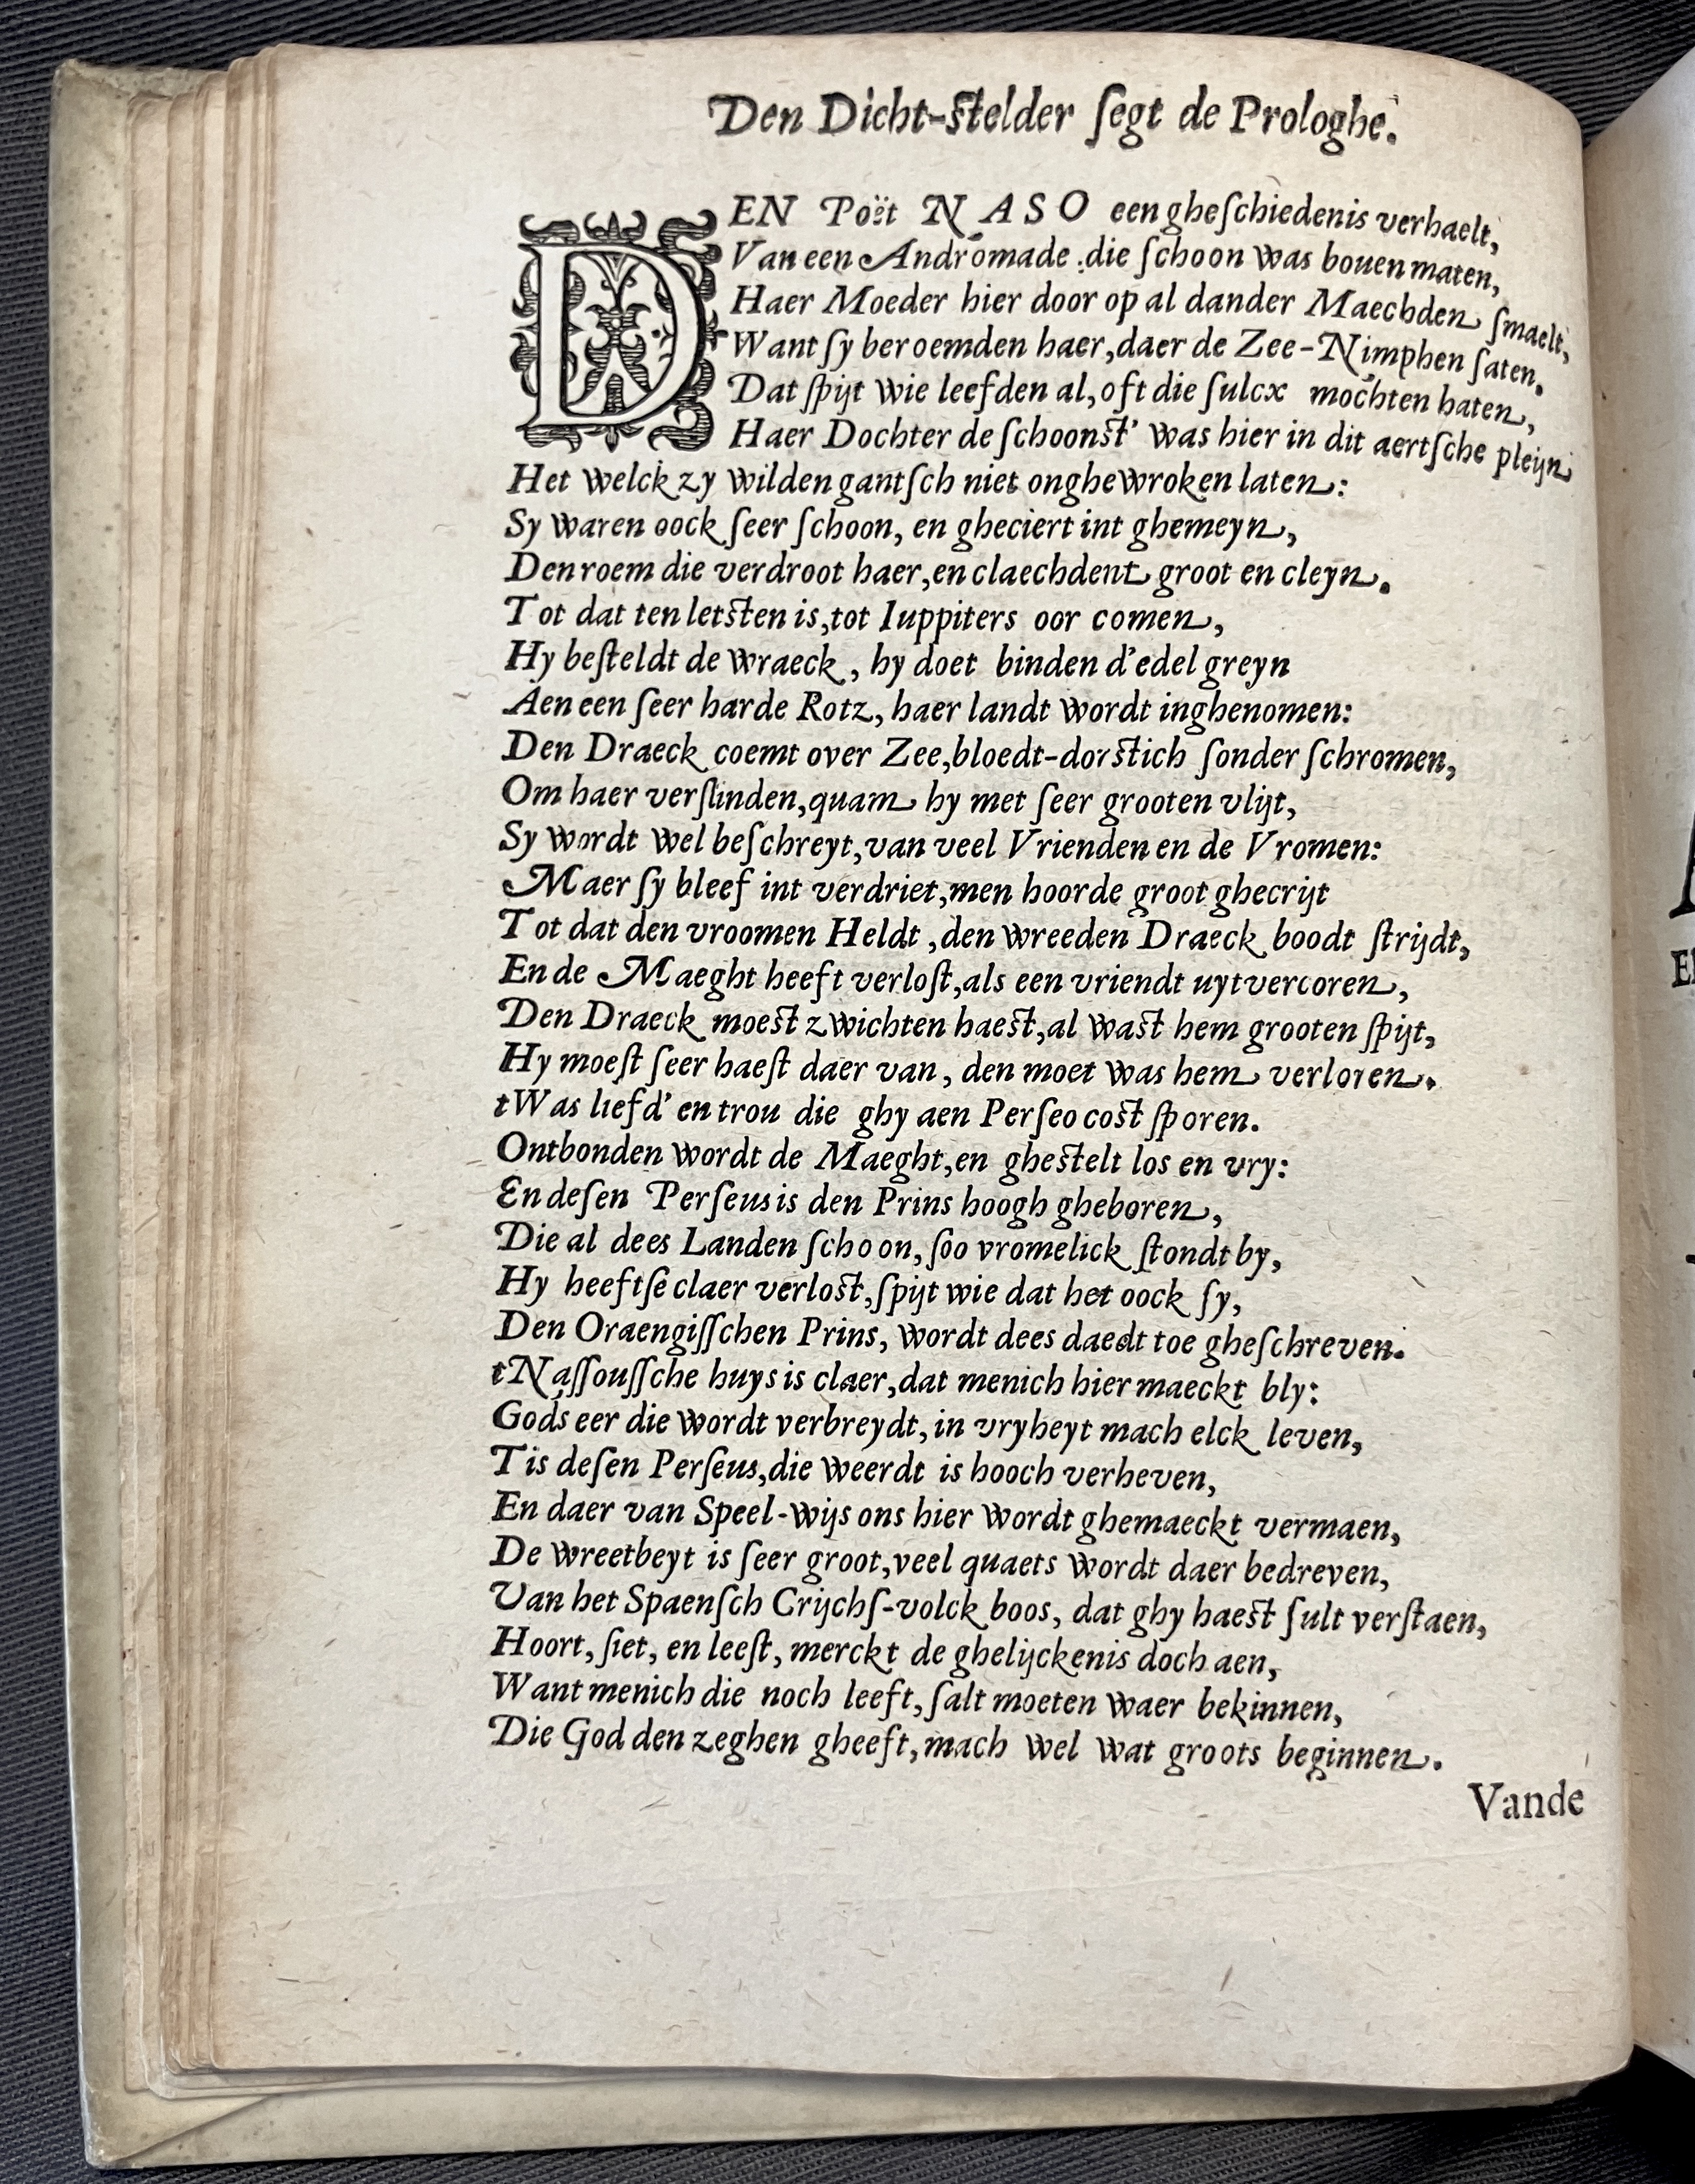 Den Dicht-ſtelder ſegt de Prologhe.
DEN Poët NASO een gheſchiedenis verhaelt,
Van een Andromade die ſchoon was bouen maten,
Haer Moeder hier door op al dander Maechden ſmaelt,
Want ſy beroemden haer, daer de Zee-Nimphen ſaten.
Dat ſpijt wie leefden al, oft die ſulcx mochten haten,
Haer Dochter de ſchoonſt' was hier in dit aertſche pleijn
Het welck zy wilden gantſch niet onghewroken laten:
Sy waren oock ſeer ſchoon, en gheciert int ghemeyn,
Den roem die verdroot haer, en claechdent groot en cleyn.
Tot dat ten letſten is, tot Iuppiters oor comen,
Hy beſteldt de wraeck, hy doet binden d'edel greyn
Aen een ſeer harde Rotz, haer landt wordt inghenomen:
Den Draeck coemt over Zee, bloedt-dorſtich ſonder ſchromen,
Om haer verſlinden, quam hy met ſeer grooten vlijt,
Sy wordt wel beſchreyt, van veel Vrienden en de Vromen:
Maer ſy bleef int verdriet, men hoorde groot ghecrijt
Tot dat den vroomen Heldt, den wreeden Draeck boodt ſtrijdt,
En de Maeght heeft verloſt, als een vriendt uytvercoren,
Den Draeck moeſt zwichten haeſt, al waſt hem grooten ſpijt,
Hy moeſt ſeer haeſt daer van, den moet was hem verloren.
tWas liefd' en trou die ghy aen Perſeo coſt ſporen.
Ontbonden wordt de Maeght, en gheſtelt los en vry:
En deſen Perſeus is den Prins hoogh gheboren,
Die al dees Landen ſchoon, ſoo vromelick ſtondt by,
Hy heeftſe claer verloſt, ſpijt wie dat het oock ſy,
Den Oraengiſſchen Prins, wordt dees daedt toe gheſchreven.
tNaſſouſſche huys is claer, dat menich hier maeckt bly:
Gods eer die wordt verbreydt, in vryheyt mach elck leven,
Tis deſen Perſeus, die weerdt is hooch verheven,
En daer van Speel-wijs ons hier wordt ghemaeckt vermaen,
De wreetheyt is ſeer groot, veel quaets wordt daer bedreven,
Van het Spaenſch Crijchſ-volck boos, dat ghy haeſt ſult verſtaen,
Hoort, ſiet, en leeſt, merckt de ghelijckenis doch aen,
Want menich die noch leeft, ſalt moeten waer bekinnen,
Die God den zeghen gheeft, mach wel wat groots beginnen.
Vande